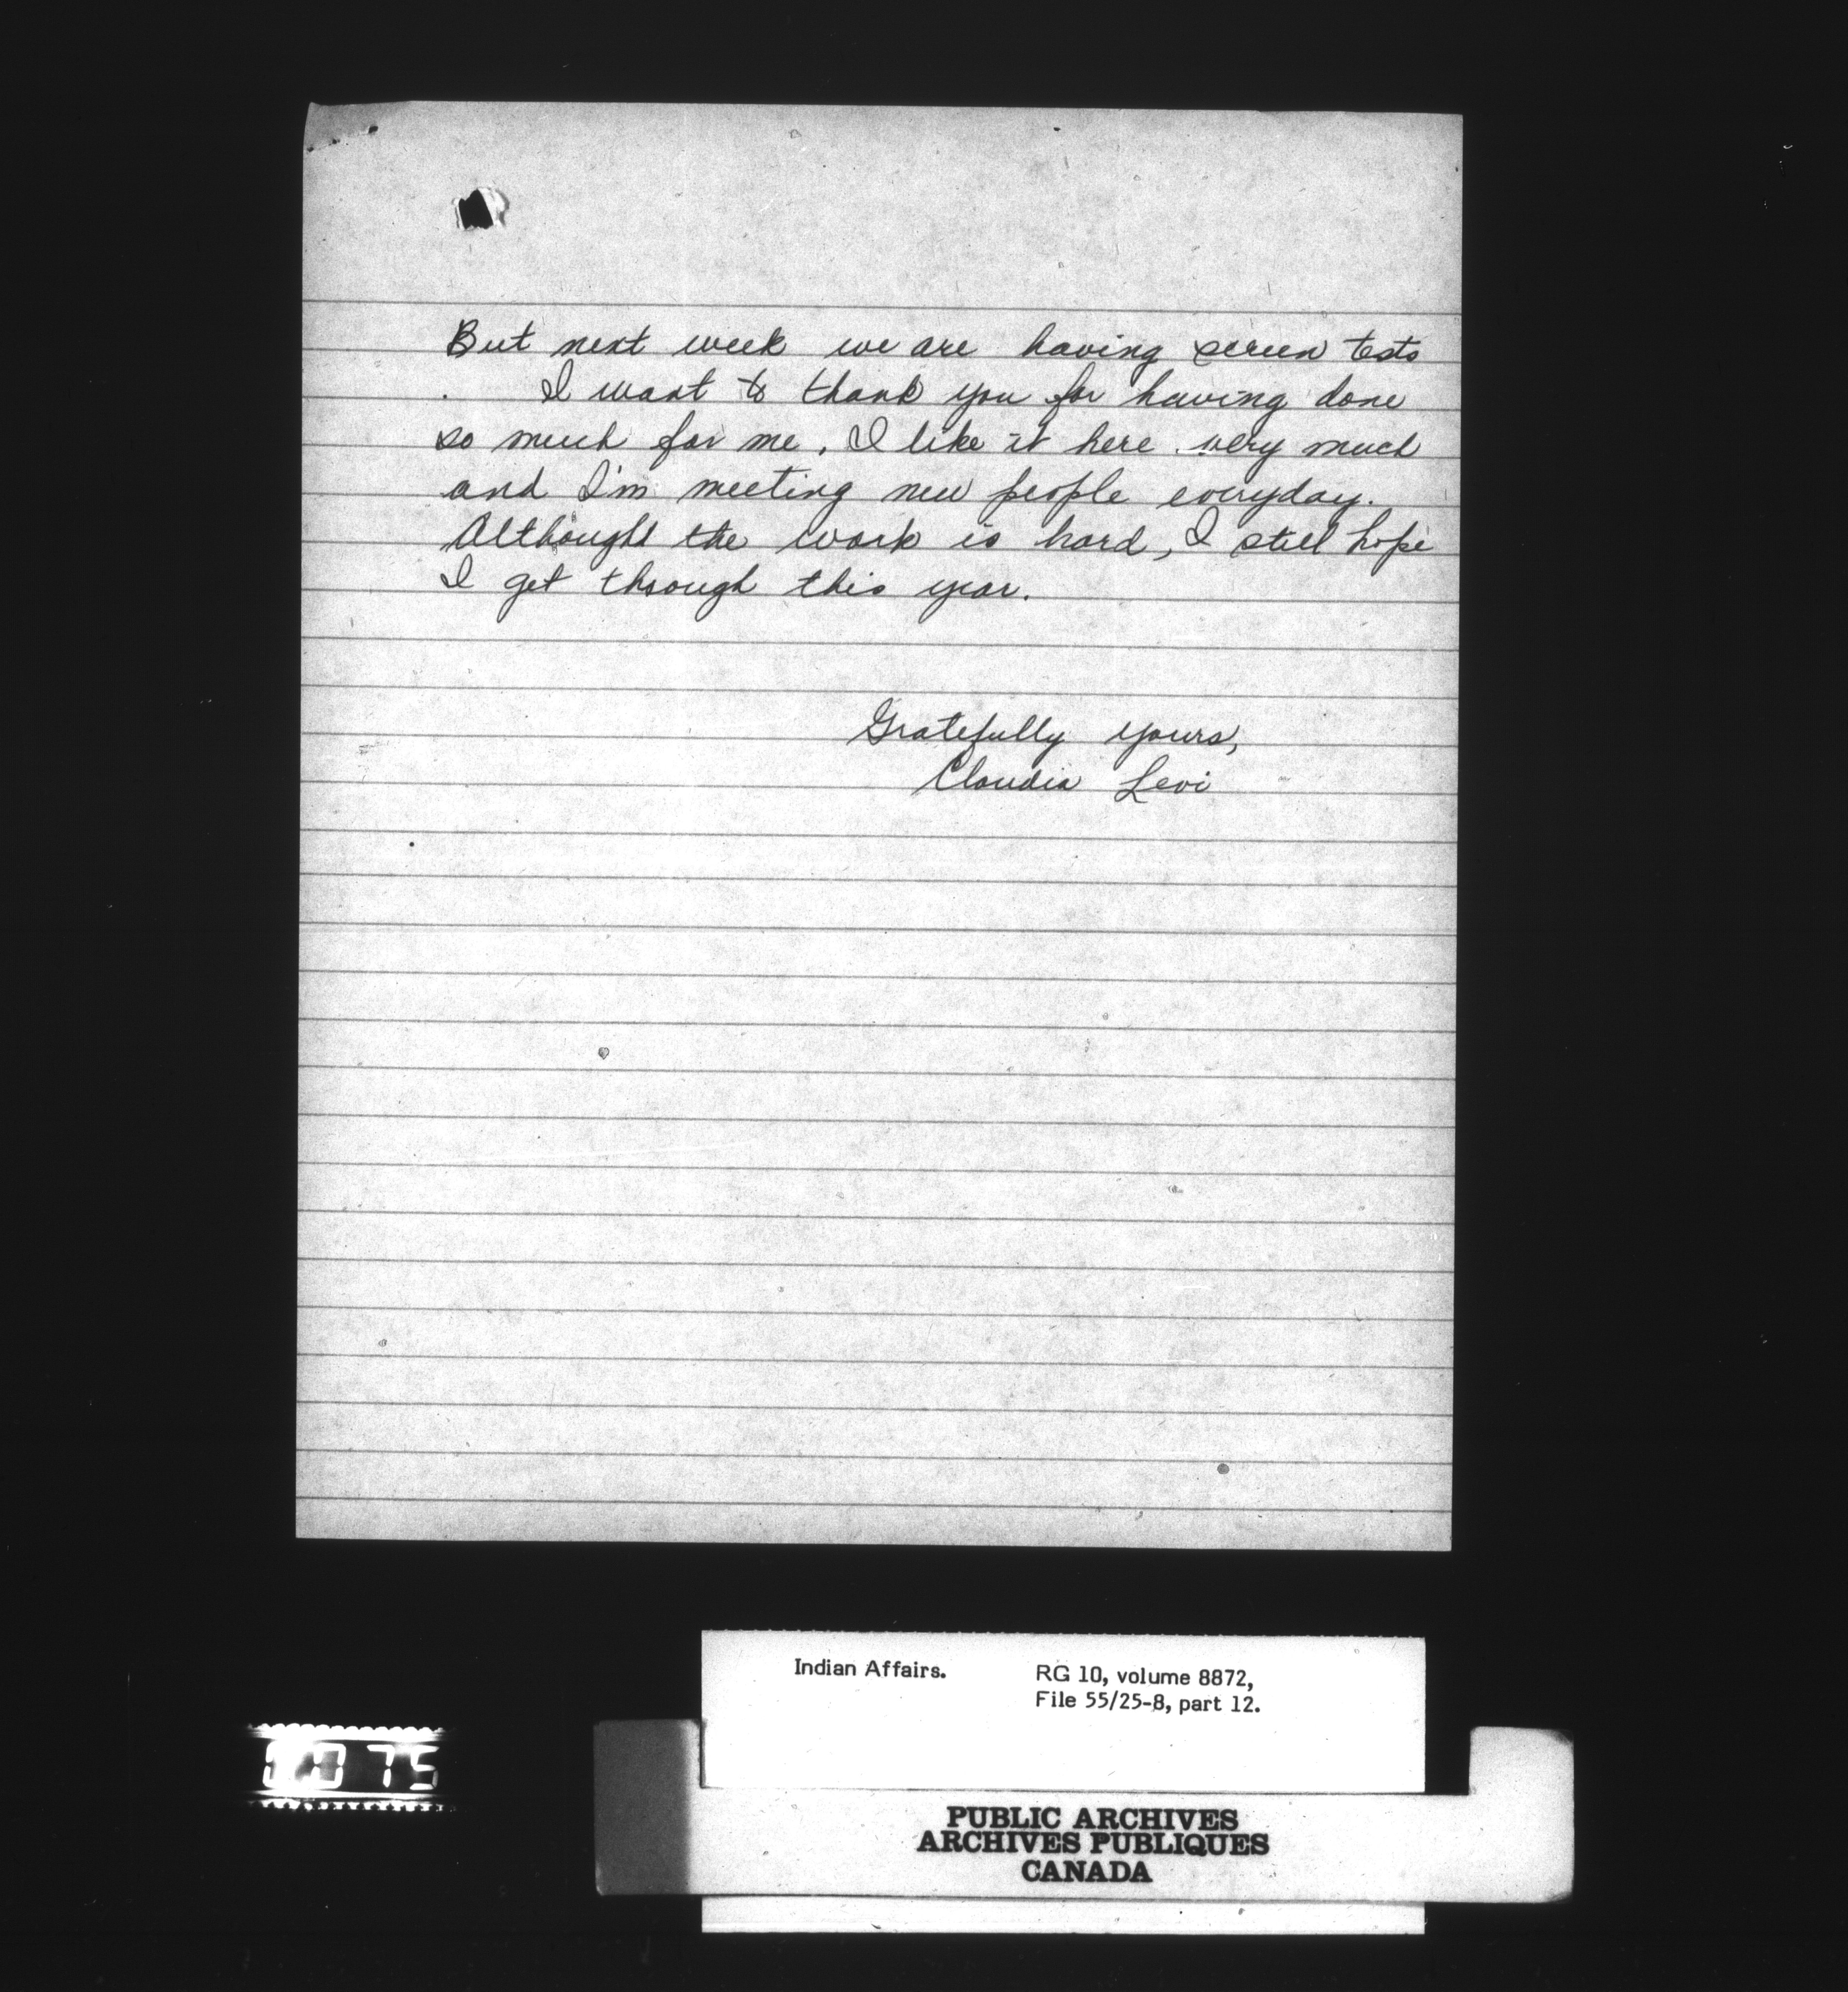 But next week we are having screen tests
. I want to thank you for having done
so much for me. I like it here very much
and I'm meeting new people everyday.
Although the work is hard, I still hope
I get through this year.
Gratefully yours,
Claudia Levi
Indian Affairs. RG 10, volume 8872,
File 55/25-8, part 12.
75
PUBLIC ARCHIVES
ARCHIVES PUBLIQUES
CANADA